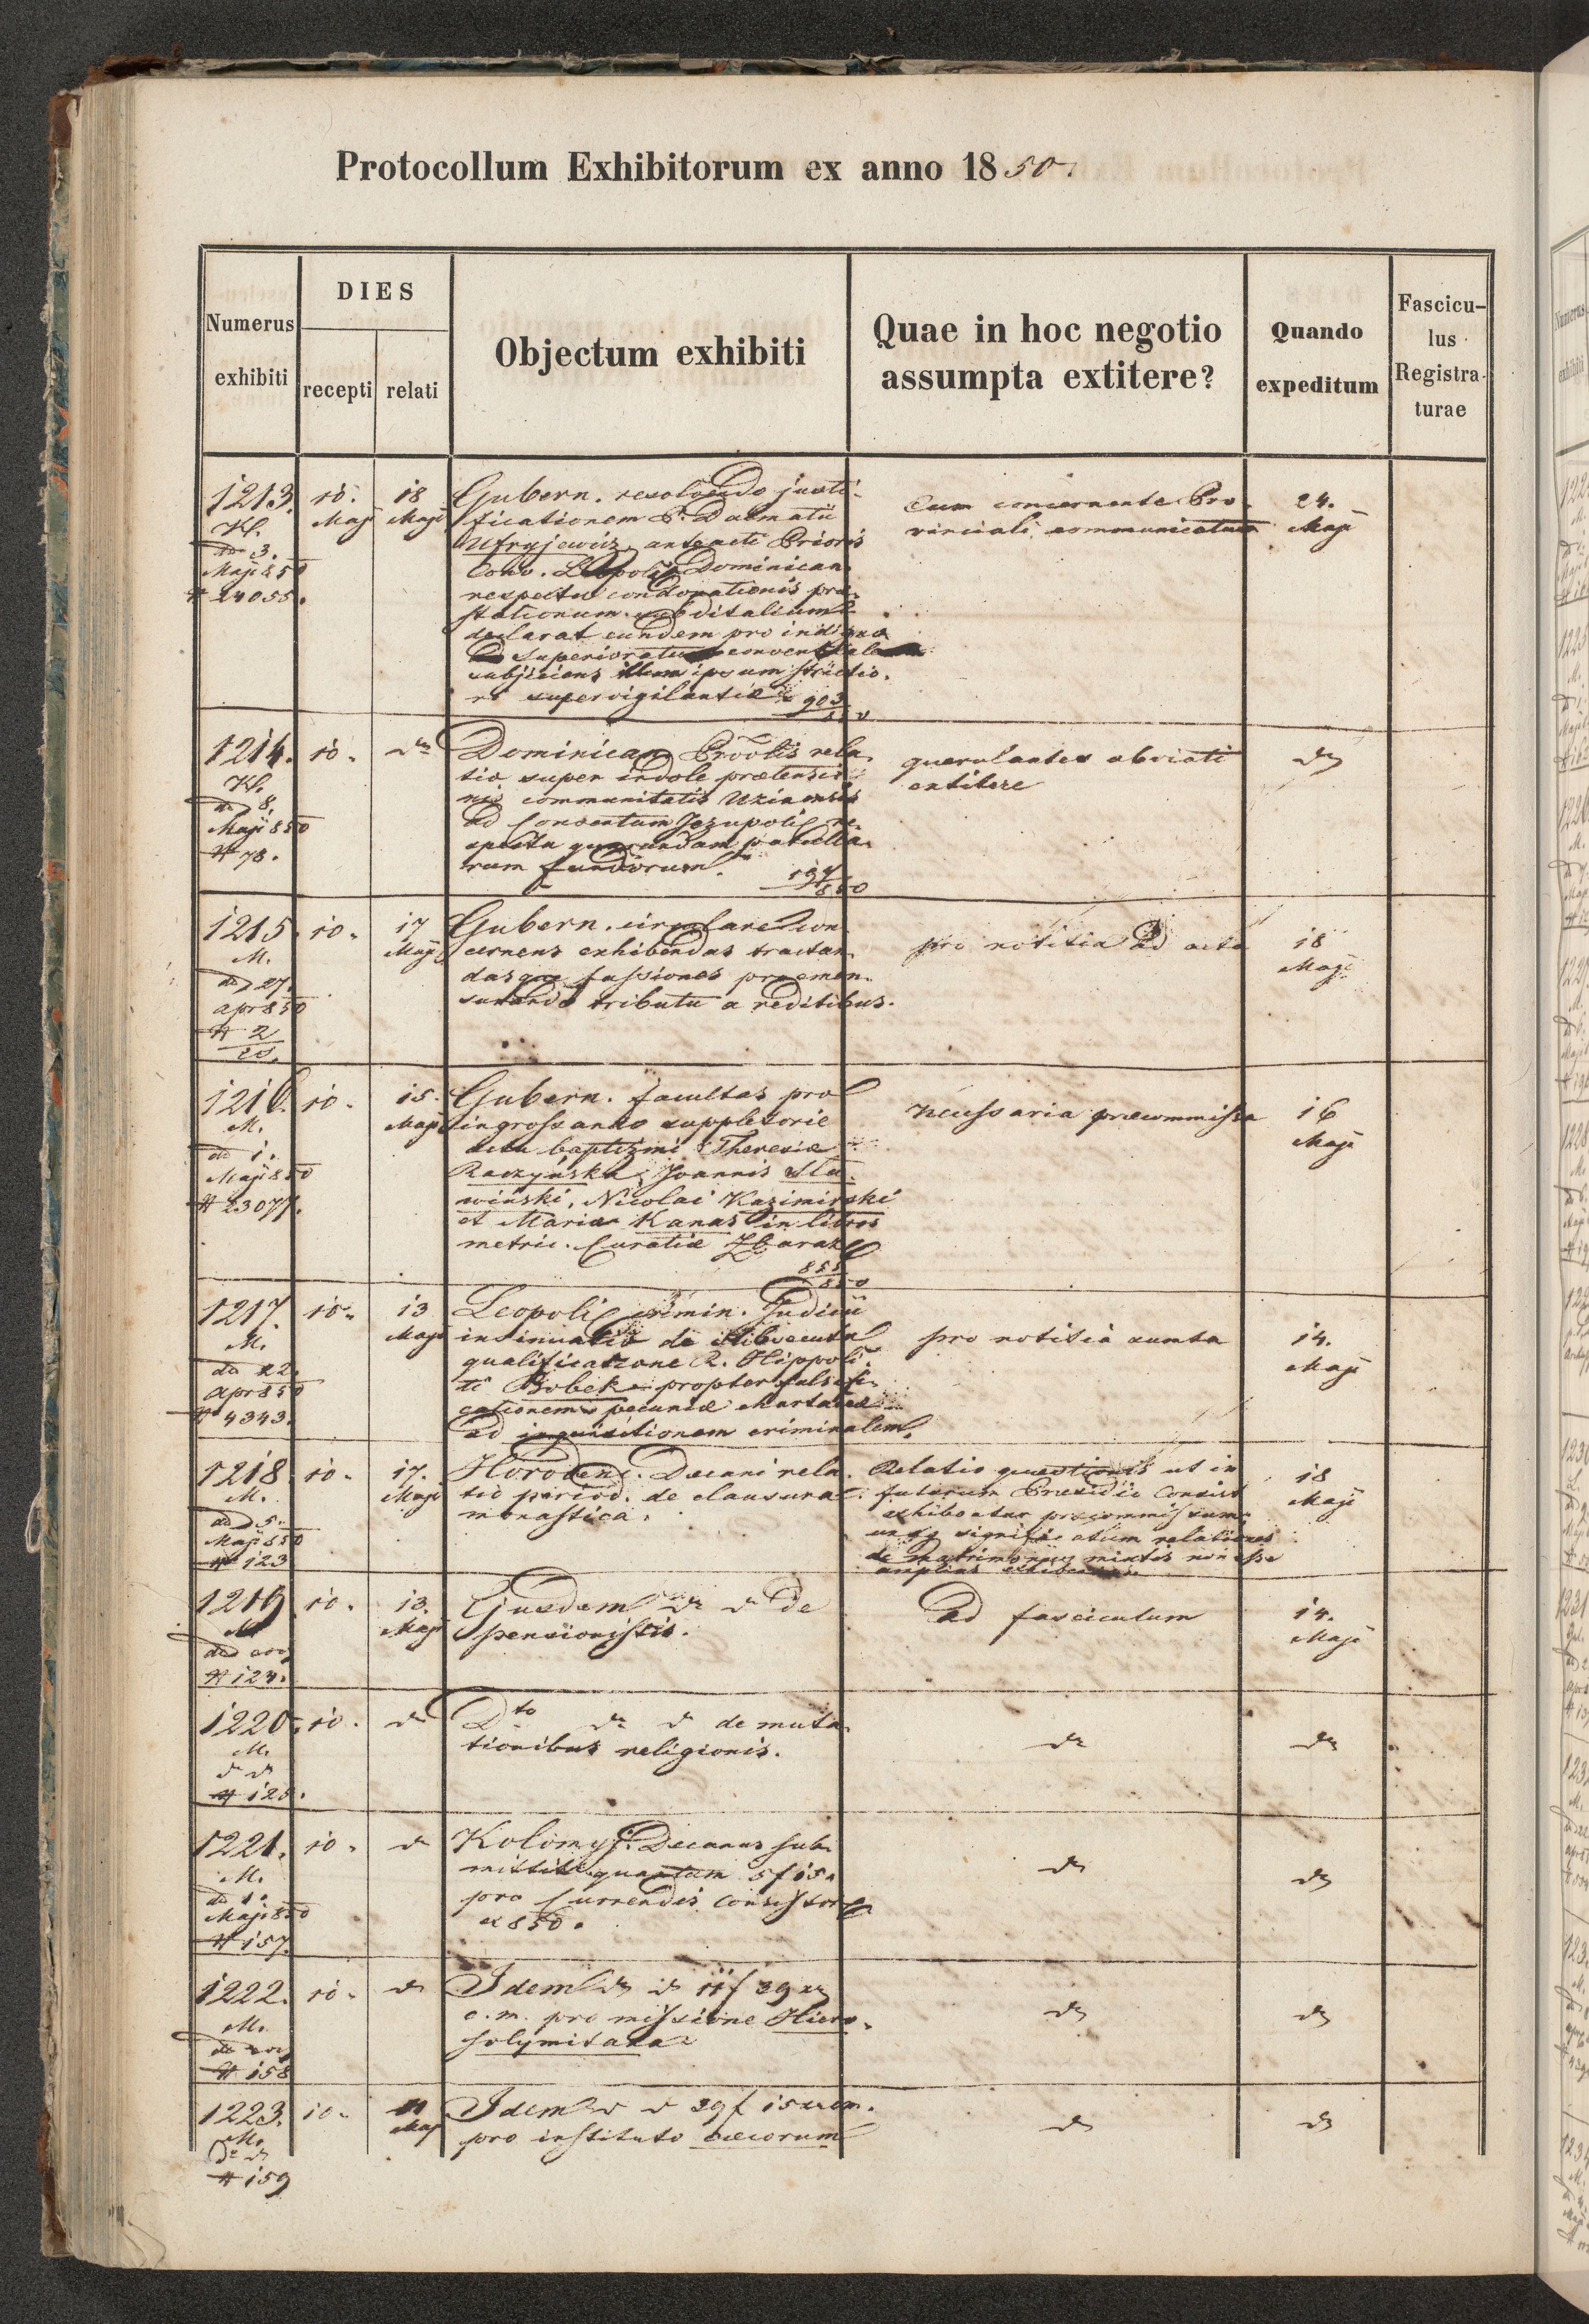 Protocollum Exhibitorum ex anno 1850.
Numerus exhibiti
DIES
recepti
relati
Objectum exhibiti
Quae in hoc negotio
assumpta extitere?
Quando
expeditum
Fascicu-
lus
Registra-
turae
1213.
Kl.
dd 3.
Maji 850
# 24055.
10.
Maji
18
Maji
Gubern. resolvendo justi-
ficationem P. Dalmatii
Ufryjewicz, anteacti Prioris
Conv. Leopol. Dominican.
respectu condonationis prae-
stationum subditalium
declarat eundem pro indigno
superioratu
subjiciens illum ipsum strictio-
ri supervigilantiae 903
850
Cum concernente Pro-
vinciali communicatum
24.
Maji
1214.
Kl.
dd 8.
Maji 850
# 78.
10.
dto
Dominican. Provlis rela-
tio super indole praetensio-
nis communitatis
ad Conventum Jezupol. re-
spectu quorundam
rum fundorum.
850
querulantes abviati
extitere
dto
1215.
M.
dd 27.
apr 850
# 2
10.
17
Maji
Gubern. circulare con-
cernens exhibendas tractan-
dasque fassiones pro emen-
surando tributu a reditibus.
pro notitia ad acta
18
Maji
1216.
M.
dd 1.
Maji 850
# 23077.
10.
15.
Maji
Gubern. facultas pro
ingrossando suppletorie
actu baptizmi Theresiae
Raczyńska, Joannis Sta-
wiński, Nicolai Kazimirski
et Mariae Kanas in libros
metric. Curatiae Zbaraz.
855
850
Necessaria praecommissa
16
Maji
1217.
M.
dd 22.
apr 850
# 4343.
10.
13
Maji
Leopol. crimin. Judicii
insinuatio de
qualificatione R. Hippoli-
ti Bobek propter falsifi-
cationem pecuniae chartaceae
ad inquisitionem criminalem.
pro notitia sumta
14.
Maji
1218.
M.
dd 5.
Maji 850
# 123
10.
17.
Maji
Horodenc. Decani rela-
tio period. de clausura
monastica.
Relatio quaestionis ut in
futurum Praesidii Consist
exhibeatur praecommissum,
unaq significatum relationes
de matrimoniis mixtis non esse
amplius exhibendas.
18
Maji
1219
M
# 124.
10.
13.
Maji
Ejusdem dto dto de
pensionistis.
Ad fasciculum
14.
Maji
1220.
M.
dto dto
# 125.
10.
dto
Dto dto dto de muta-
tionibus religionis.
dto
dto
1221.
M.
dd 1.
Maji 850
# 157.
10.
dto
Kolomyj. Decanus sub-
mittit quantum 5 f 15.
pro Currendis Consistor.
ex 850.
dto
dto
1222.
M.
# 158
10.
dto
Idem dto dto 11 f 39 xr
c. m. pro missione Hiero-
solymitana
dto
dto
1223.
M.
dto dto
# 159
10.
Maji
Idem dto dto 39 f 15 xr cm.
pro instituto caecorum
dto
dto